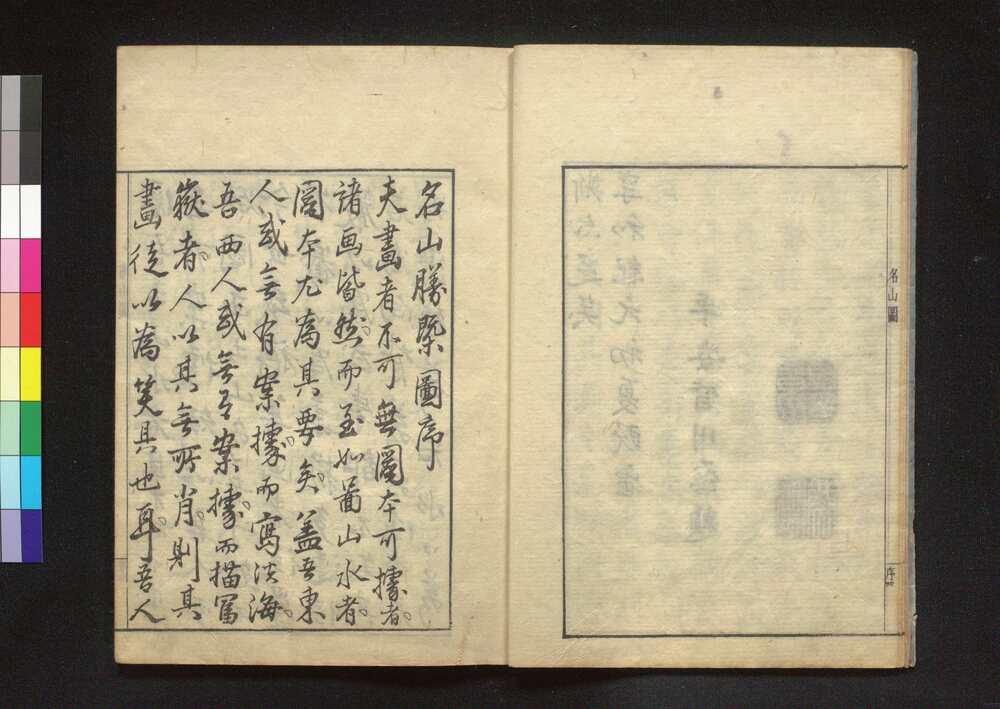 名山圖
序
名山勝槩圖序
夫畫者不可無圖本可據者。
諸画皆然。而至如畵山水者。
圖本尤為其要矣。蓋吾東
人或無有案據。而寫淡海。
吾西人或無有案據。而描冨
嶽者。人以其無所肖。則其
畫徒以為笑具也耳。吾人